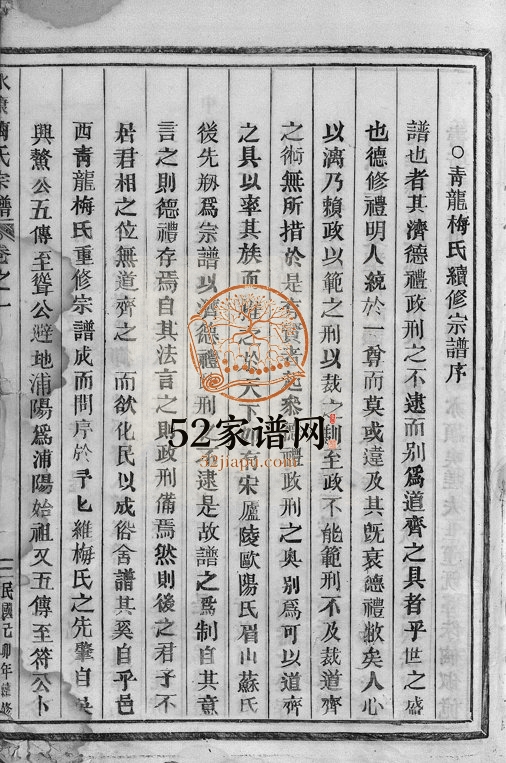 ○靑龍梅氏續修宗譜序
譜也者其濟德禮政刑之不逮而別爲道齊之具者乎世之盛
也德修禮明人統於一尊而莫或違及其旣衰德禮敝矣人心
以漓乃賴政以範之刑以裁之至政不能範刑不及裁道齊
之術無所措於是賢者起德禮政刑之奥別爲可以道齊
之具以率其族而之天下宋廬陵歐陽氏眉山蘇氏
後先刱爲宗譜以濟德禮刑逮是故譜之爲制自其意
言之則德禮存焉自其法言之則政刑備焉然則後之君子不
居君相之位無道齊之而欲化民以成俗舍譜其奚自乎邑
西靑龍梅氏重修宗譜成而問序於予匕維梅氏之先肇自吳
興鰲公五傳至聳公避地浦陽爲浦陽始祖又五傳至符公卜
氏宗譜 卷之一
民國己卯年
52家谱网
52jiapu.com